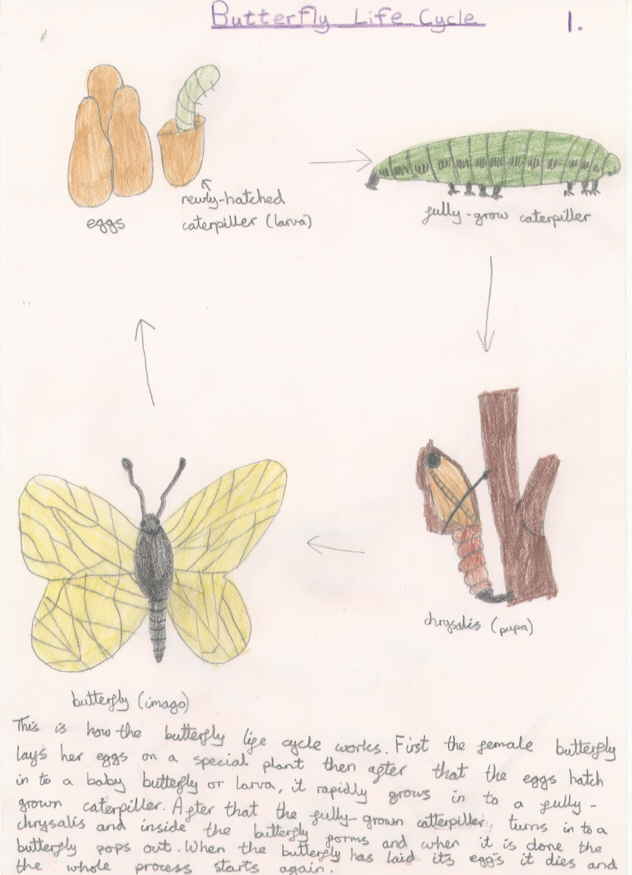 Butterfly Life Cycle
1.
eggs
newly-hatched
caterpiller (larva)
fully-grow caterpiller
chrysalis (pupa)
butterfly (imago)
This is how the butterfly life cycle works. First the female butterfly
lays her eggs on a special plant then after that the eggs hatch
in to a baby butterfly or larva, it rapidly grows in to a fully-
grown caterpiller. After that the fully-grown catterpiller, turns in to a
chrysalis and inside the butterfly forms and when it is done the
butterfly pops out. When the butterfly has laid its eggs it dies and
the whole process starts again.